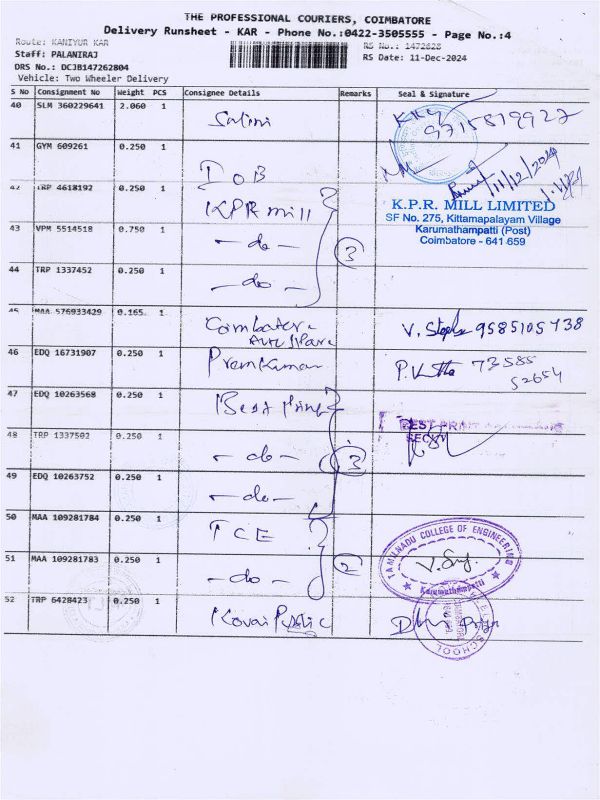 THE PROFESSIONAL COURIERS, COIMBATORE
Delivery Runsheet - KAR - Phone No.:0422-3505555 - Page No.:4
Route: KANIYUR KAR
RS No.: 1472628
Staff: PALANIRAJ
RS Date: 11-Dec-2024
DRS No.: DCJB147262804
Vehicle: Two Wheeler Delivery
S No Consignment No Weight PCS Consignee Details Remarks Seal & Signature
40 SLM 360229641 2.060 1 Salini
9715819927
41 GYM 609261 0.250 1 IOB
11/12/2024
42 TRP 4618192 0.250 1 KPR mill
K.P.R. MILL LIMITED
SF No. 275, Kittamapalayam Village
Karumathampatti (Post)
Coimbatore - 641 659
43 VPM 5514518 0.750 1 - do - 3
44 TRP 1337452 0.250 1 - do -
45 MAA 576933429 0.165 1 Coimbatore
9585105438
46 EDQ 16731907 0.250 1 Premkumar
73585
52654
47 EDQ 10263568 0.250 1 Best Print
BEST PRINT
48 TRP 1337502 0.250 1 - do - 3
49 EDQ 10263752 0.250 1 - do -
50 MAA 109281784 0.250 1 TCE
TAMILNADU COLLEGE OF ENGINEERING
Karumathampatti
51 MAA 109281783 0.250 1 - do - 2
52 TRP 6428423 0.250 1 Kovai Public
SCHOOL